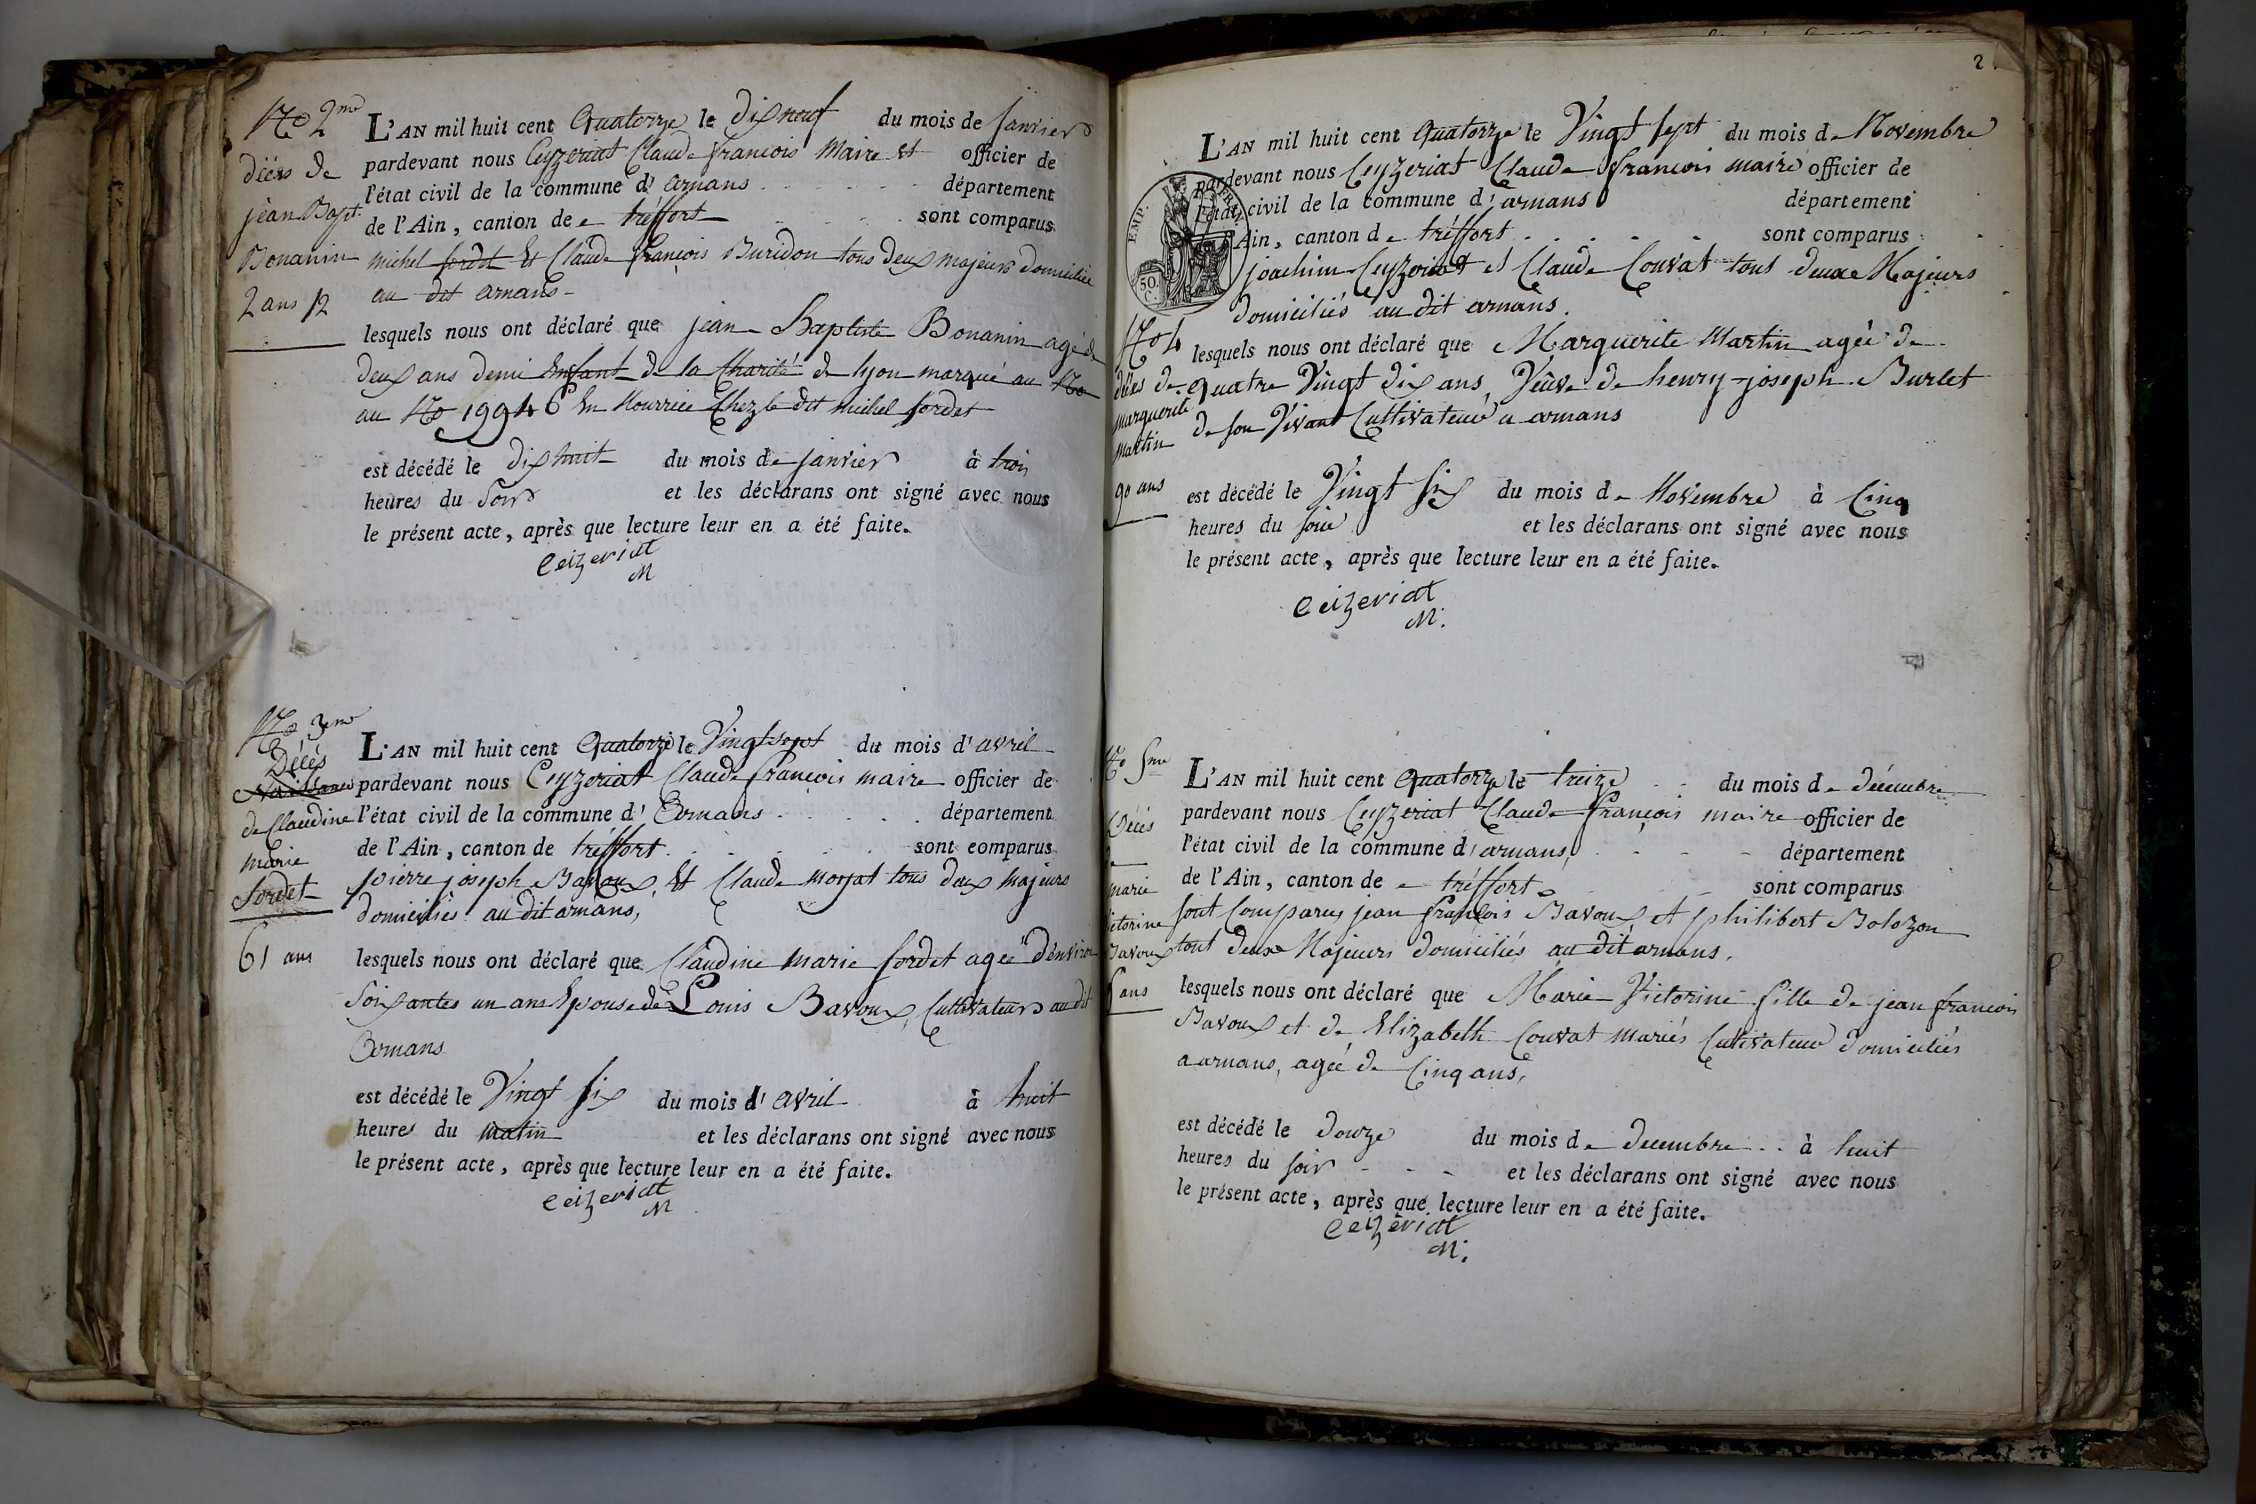 No 2me
décès de
jean Bapt.
Bonanin
2 ans 1/2
L'AN mil huit cent Quatorze le dix neuf du mois de Janvier
pardevant nous Ceyzeriat Claude francois Maire et officier de
l'état civil de la commune d' arnans département
de l'Ain, canton de tréffort sont comparus
michel fordet Et Claude françois Buridon tous deux majeurs domiciliés
au dit arnans
lesquels nous ont déclaré que jean Baptiste Bonanin agé de
deux ans demi Enfant de la Charité de lyon marqué au No
au No 19946 En Nourrice Chez le dit michel fordet
est décédé le dix huit du mois de janvier à trois
heures du Soir et les déclarans ont signé avec nous
le présent acte, après que lecture leur en a été faite.
Ceizeriat
M
No 3me
Décès
Naissance
de Claudine
Marie
fordet
61 ans
L'AN mil huit cent Quatorze le Vingt sept du mois d'avril
pardevant nous Ceyzeriat Claude francois maire officier de
l'état civil de la commune d' Ornans département
de l'Ain, canton de tréffort sont comparus
pierre joseph Bavoux Et Claude morjat tous deux majeurs
domiciliés au dit arnans,
lesquels nous ont déclaré que Claudine marie fordet agée d'environ
Soixantes un ans Epouse de Louis Bavoux Cultivateur au dit
Ornans
est décédé le Vingt six du mois d'avril à huit
heures du matin et les déclarans ont signé avec nous
le présent acte, après que lecture leur en a été faite.
Ceizeriat
M
2
L'AN mil huit cent Quatorze le Vingt sept du mois de Novembre
pardevant nous Ceyzeriat Claude francois maire officier de
l'état civil de la commune d'arnans département
Ain, canton de tréffort sont comparus
joachim Ceyzeriat et Claude Couvat tous deux Majeurs
domiciliés au dit arnans.
EMP. FRAN.
50.
C.
No 4
décès de
marguerite
martin
90 ans
lesquels nous ont déclaré que Marguerite Martin agée de
quatre Vingt dix ans Veuve de henry joseph Burlet
de son Vivant Cultivateur a arnans
est décédé le Vingt Six du mois de Novembre à Cinq
heures du soir et les déclarans ont signé avec nous
le présent acte, après que lecture leur en a été faite.
Ceizeriat
M.
No 5me
Décès
de
marie
victorine
Bavoux
5 ans
L'AN mil huit cent Quatorze le treize du mois de décembre
pardevant nous Ceyzeriat Claude françois maire officier de
l'état civil de la commune d'arnans, département
de l'Ain, canton de tréffort sont comparus
sont Comparus jean françois Bavoux et philibert Bolozon
tout deux Majeurs domiciliés au dit arnans,
lesquels nous ont déclaré que Marie Victorine fille de jean francois
Bavoux et de Elizabeth Couvat mariés Cultivateur domiciliés
a arnans, agée de Cinq ans,
est décédé le douze du mois de decembre à huit
heures du soir et les déclarans ont signé avec nous
le présent acte, après que lecture leur en a été faite.
Ceizeriat
M.